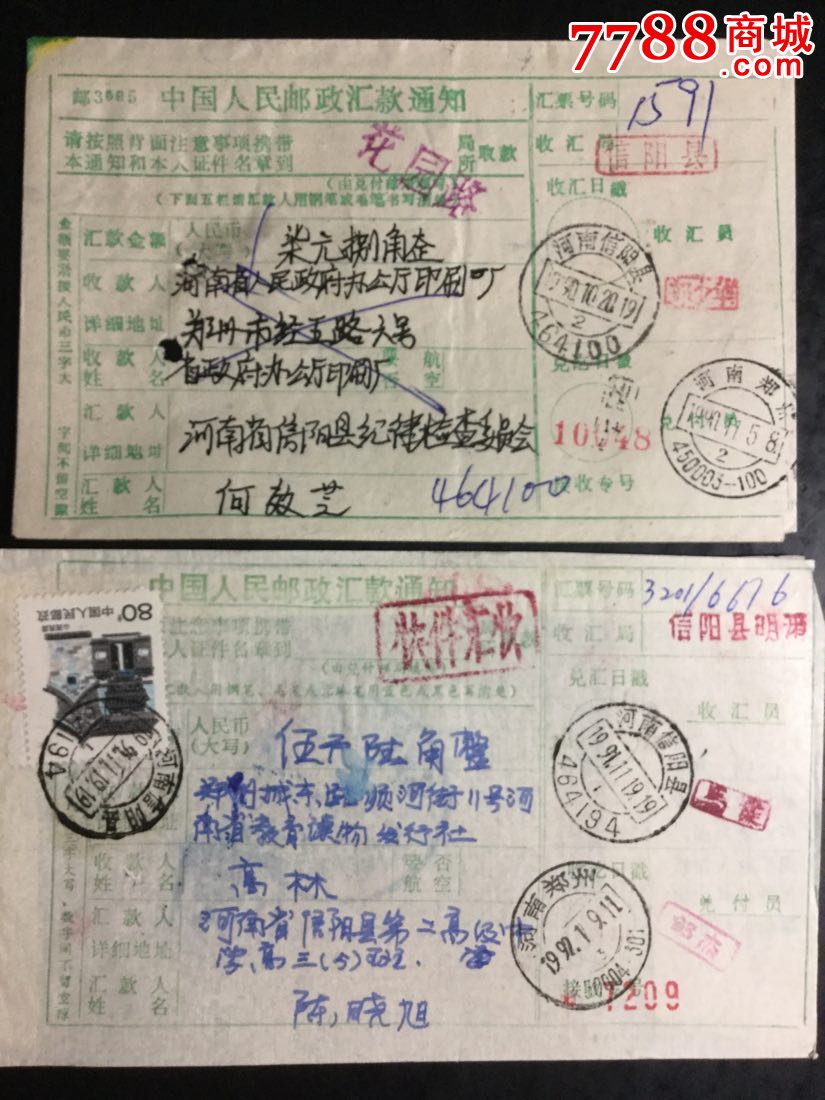 7788商城
邮3005 中国人民邮政汇款通知
请按照背面注意事项携带
本通知和本人证件名章到
局
所
取款
花园路
(下面五栏请汇款人用钢笔或毛笔书写清楚)
汇票号码
1591
收汇局
信阳县
收汇日戳
收汇员
汇款金额
人民币
(大写)
柒元捌角整
收款人
河南省人民政府办公厅印刷厂
详细地址
郑州市经五路六号
收款人
姓名
省政府办公厅印刷厂
航空
汇款人
详细地址
河南省信阳县纪律检查委员会
汇款人
姓名
何敬芝
464100
河南信阳县
1992.10.20.19
2
464100
兑汇日戳
10048
接收专号
河南郑州
1992.11.5.8
2
450003-100
金额要沿接人民币三字大
字间不留空隙
中国人民邮政汇款通知
80分
中国人民邮政
快件汇款
注意事项携带
人证件名章到
汇票号码
3201/6616
收汇局
信阳县明港
兑汇日戳
收汇员
人民币
(大写)
伍元陆角整
郑州城东路顺河街11号河
南省教育读物发行社
收款人
姓名
要否
航空
高林
汇款人
详细地址
河南省信阳县第二高级中
学高三(5)班
汇款人
姓名
陈晓旭
河南信阳县
1991.11.19.19
464194
河南信阳县
1991.11.19.19
464194
兑汇日戳
兑付员
河南郑州
1992.1.9.11
450004 301
接收专号
7209
大写,数字间不留空隙